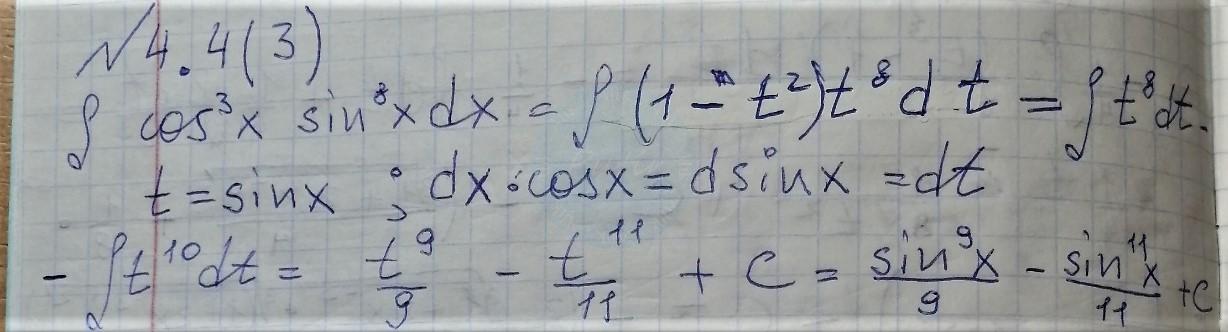 №4.4(3)
∫ cos³x sin⁸x dx = ∫ (1 - t²)t⁸ d t = ∫ t⁸ dt -
t = sin x ; dx · cos x = d sin x = dt
- ∫ t¹⁰ dt = t⁹/9 - t¹¹/11 + C = sin⁹x/9 - sin¹¹x/11 + C